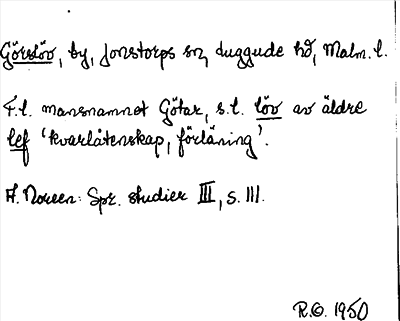 Görslöv, by, Jonstorps sn, Luggude hd, Malm. l.
F.l. mansnamnet Götar, s.l. löv av äldre
lef 'kvarlåtenskap, förläning'.
A. Noreen: Spr. studier III, s. 111.
R.O. 1950